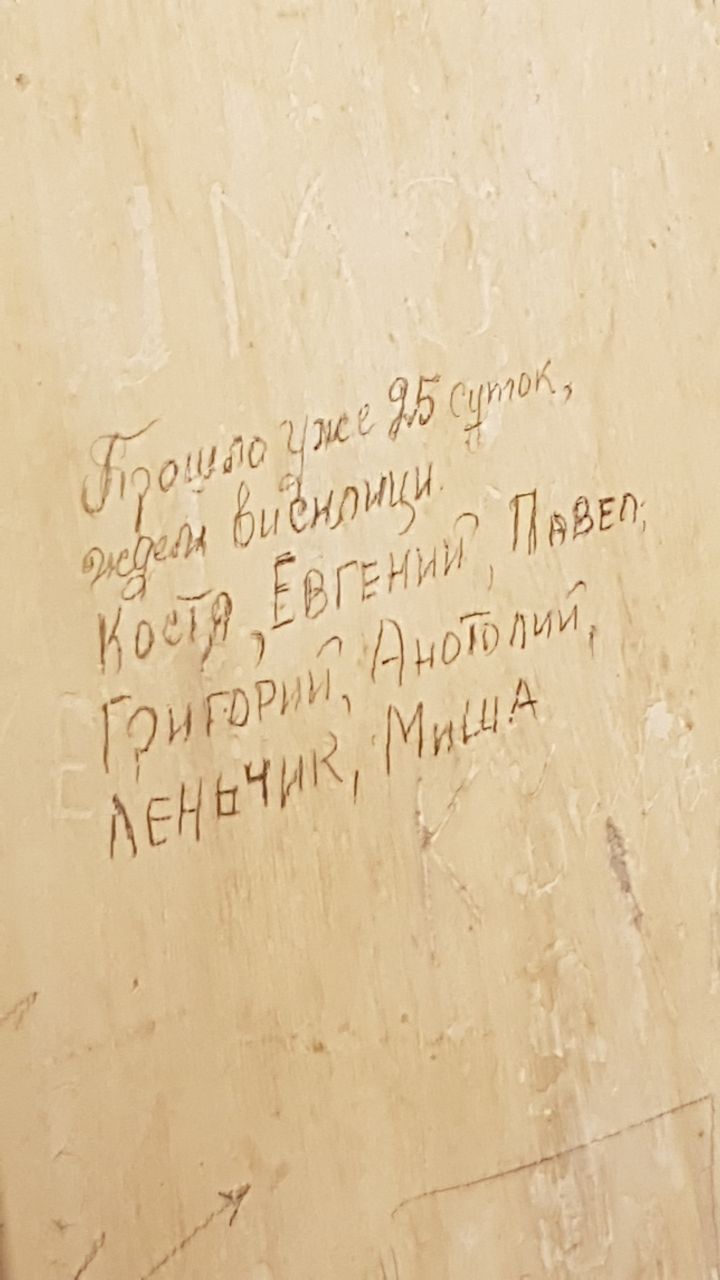 JM
Прошло уже 25 суток,
ждем висилици.
Костя, Евгений, Павел,
Григорий, Анотолий,
Леньчик, Миша
К